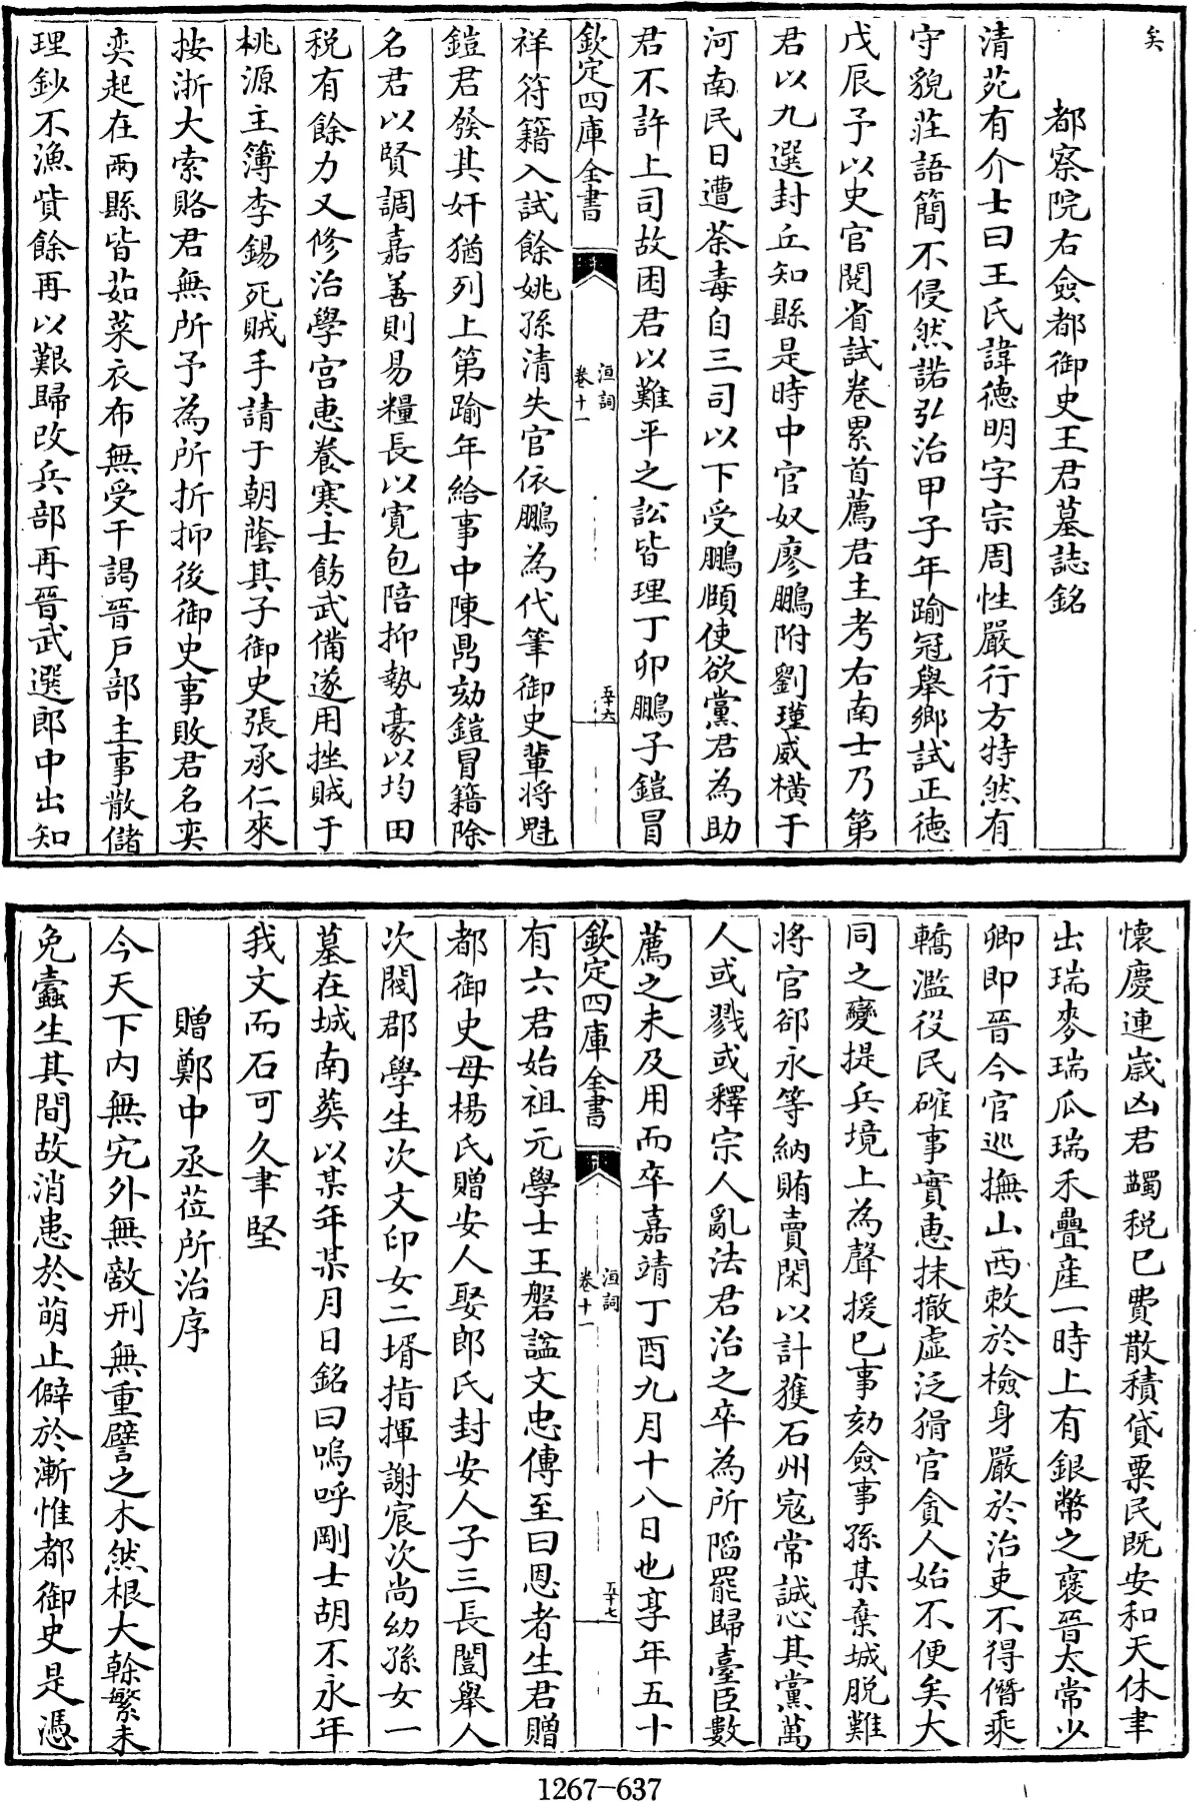 矣
都察院右僉都御史王君墓誌銘
清苑有介士曰王氏諱徳明字宗周性嚴行方特然有
守貌莊語簡不侵然諾弘治甲子年踰冠舉鄉試正徳
戊辰予以史官閱省試卷累首薦君主考右南士乃第
君以九選封丘知縣是時中官奴廖鵬附劉瑾威横于
河南民日遭荼毒自三司以下受鵬頤使欲黨君為助
君不許上司故困君以難平之訟皆理丁卯鵬子鎧冒
欽定四庫全書
洹詞
卷十一
五十六
祥符籍入試餘姚孫清失官依鵬為代筆御史輩將魁
鎧君發其奸猶列上第踰年給事中陳鼎劾鎧冒籍除
名君以賢調嘉善則易糧長以寛包陪抑勢豪以均田
税有餘力又修治學宫惠養寒士飭武備遂用挫賊于
桃源主簿李錫死賊手請于朝蔭其子御史張承仁來
按浙大索賂君無所予為所折抑後御史事敗君名奕
奕起在兩縣皆茹菜衣布無受干謁晉戸部主事散儲
理鈔不漁貲餘再以艱歸改兵部再晉武選郎中出知
懷慶連歲凶君蠲税已費散積貸粟民既安和天休聿
出瑞麥瑞瓜瑞禾疊産一時上有銀幣之褒晉太常少
卿即晉今官巡撫山西敕於檢身嚴於治吏不得僭乘
轎濫役民確事實惠抹撤虚泛猾官貪人始不便矣大
同之變提兵境上為聲援已事劾僉事孫某棄城脱難
將官郤永等納賄賣閑以計獲石州宼常誠心其黨萬
人或戮或釋宗人亂法君治之卒為所䧟罷歸臺臣數
薦之未及用而卒嘉靖丁酉九月十八日也享年五十
欽定四庫全書
洹詞
卷十一
五十七
有六君始祖元學士王磐諡文忠傳至曰恩者生君贈
都御史母楊氏贈安人娶郎氏封安人子三長闓舉人
次閥郡學生次文印女二壻指揮謝宸次尚幼孫女一
墓在城南葬以某年某月日銘曰嗚呼剛士胡不永年
我文而石可久聿堅
贈鄭中丞莅所治序
今天下内無宄外無敵刑無重譬之木然根大榦繁未
免蠧生其間故消患於萌止僻於漸惟都御史是憑
1267-637